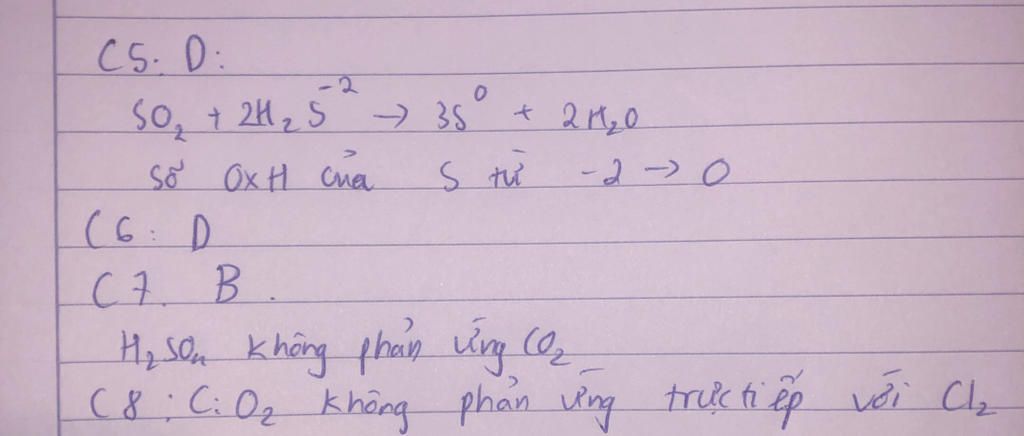 C5: D:
SO₂ + 2H₂S⁻² → 3S⁰ + 2H₂O
số OXH của S từ -2 → 0
C6: D
C7. B.
H₂SO₄ không phản ứng CO₂
C8: C: O₂ không phản ứng trực tiếp với Cl₂